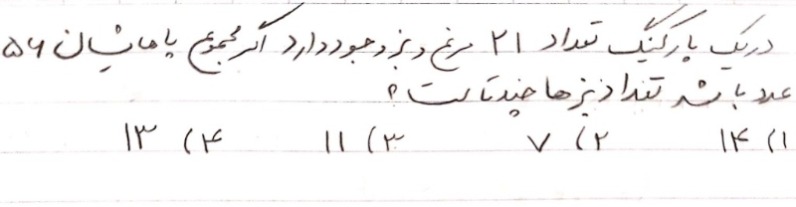 در یک پارکینگ تعداد ۲۱ مرغ و بز وجود دارد اگر مجموع پاهایشان ۵۶
عدد باشد تعداد بزها چندتاست؟
۱) ۱۴ ۲) ۷ ۳) ۱۱ ۴) ۱۳